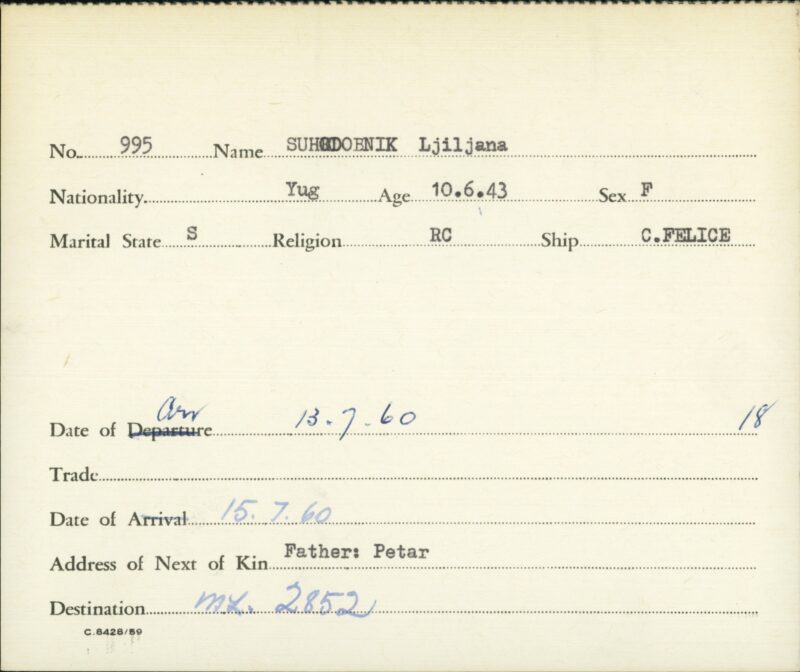 No. 995 Name SUHODOBNIK Ljiljana
Nationality Yug Age 10.6.43 Sex F
Marital State S Religion RC Ship C.FELICE
Arr
Date of Departure 13.7.60 18
Trade
Date of Arrival 15.7.60
Address of Next of Kin Father: Petar
Destination 2852
C.8428/59